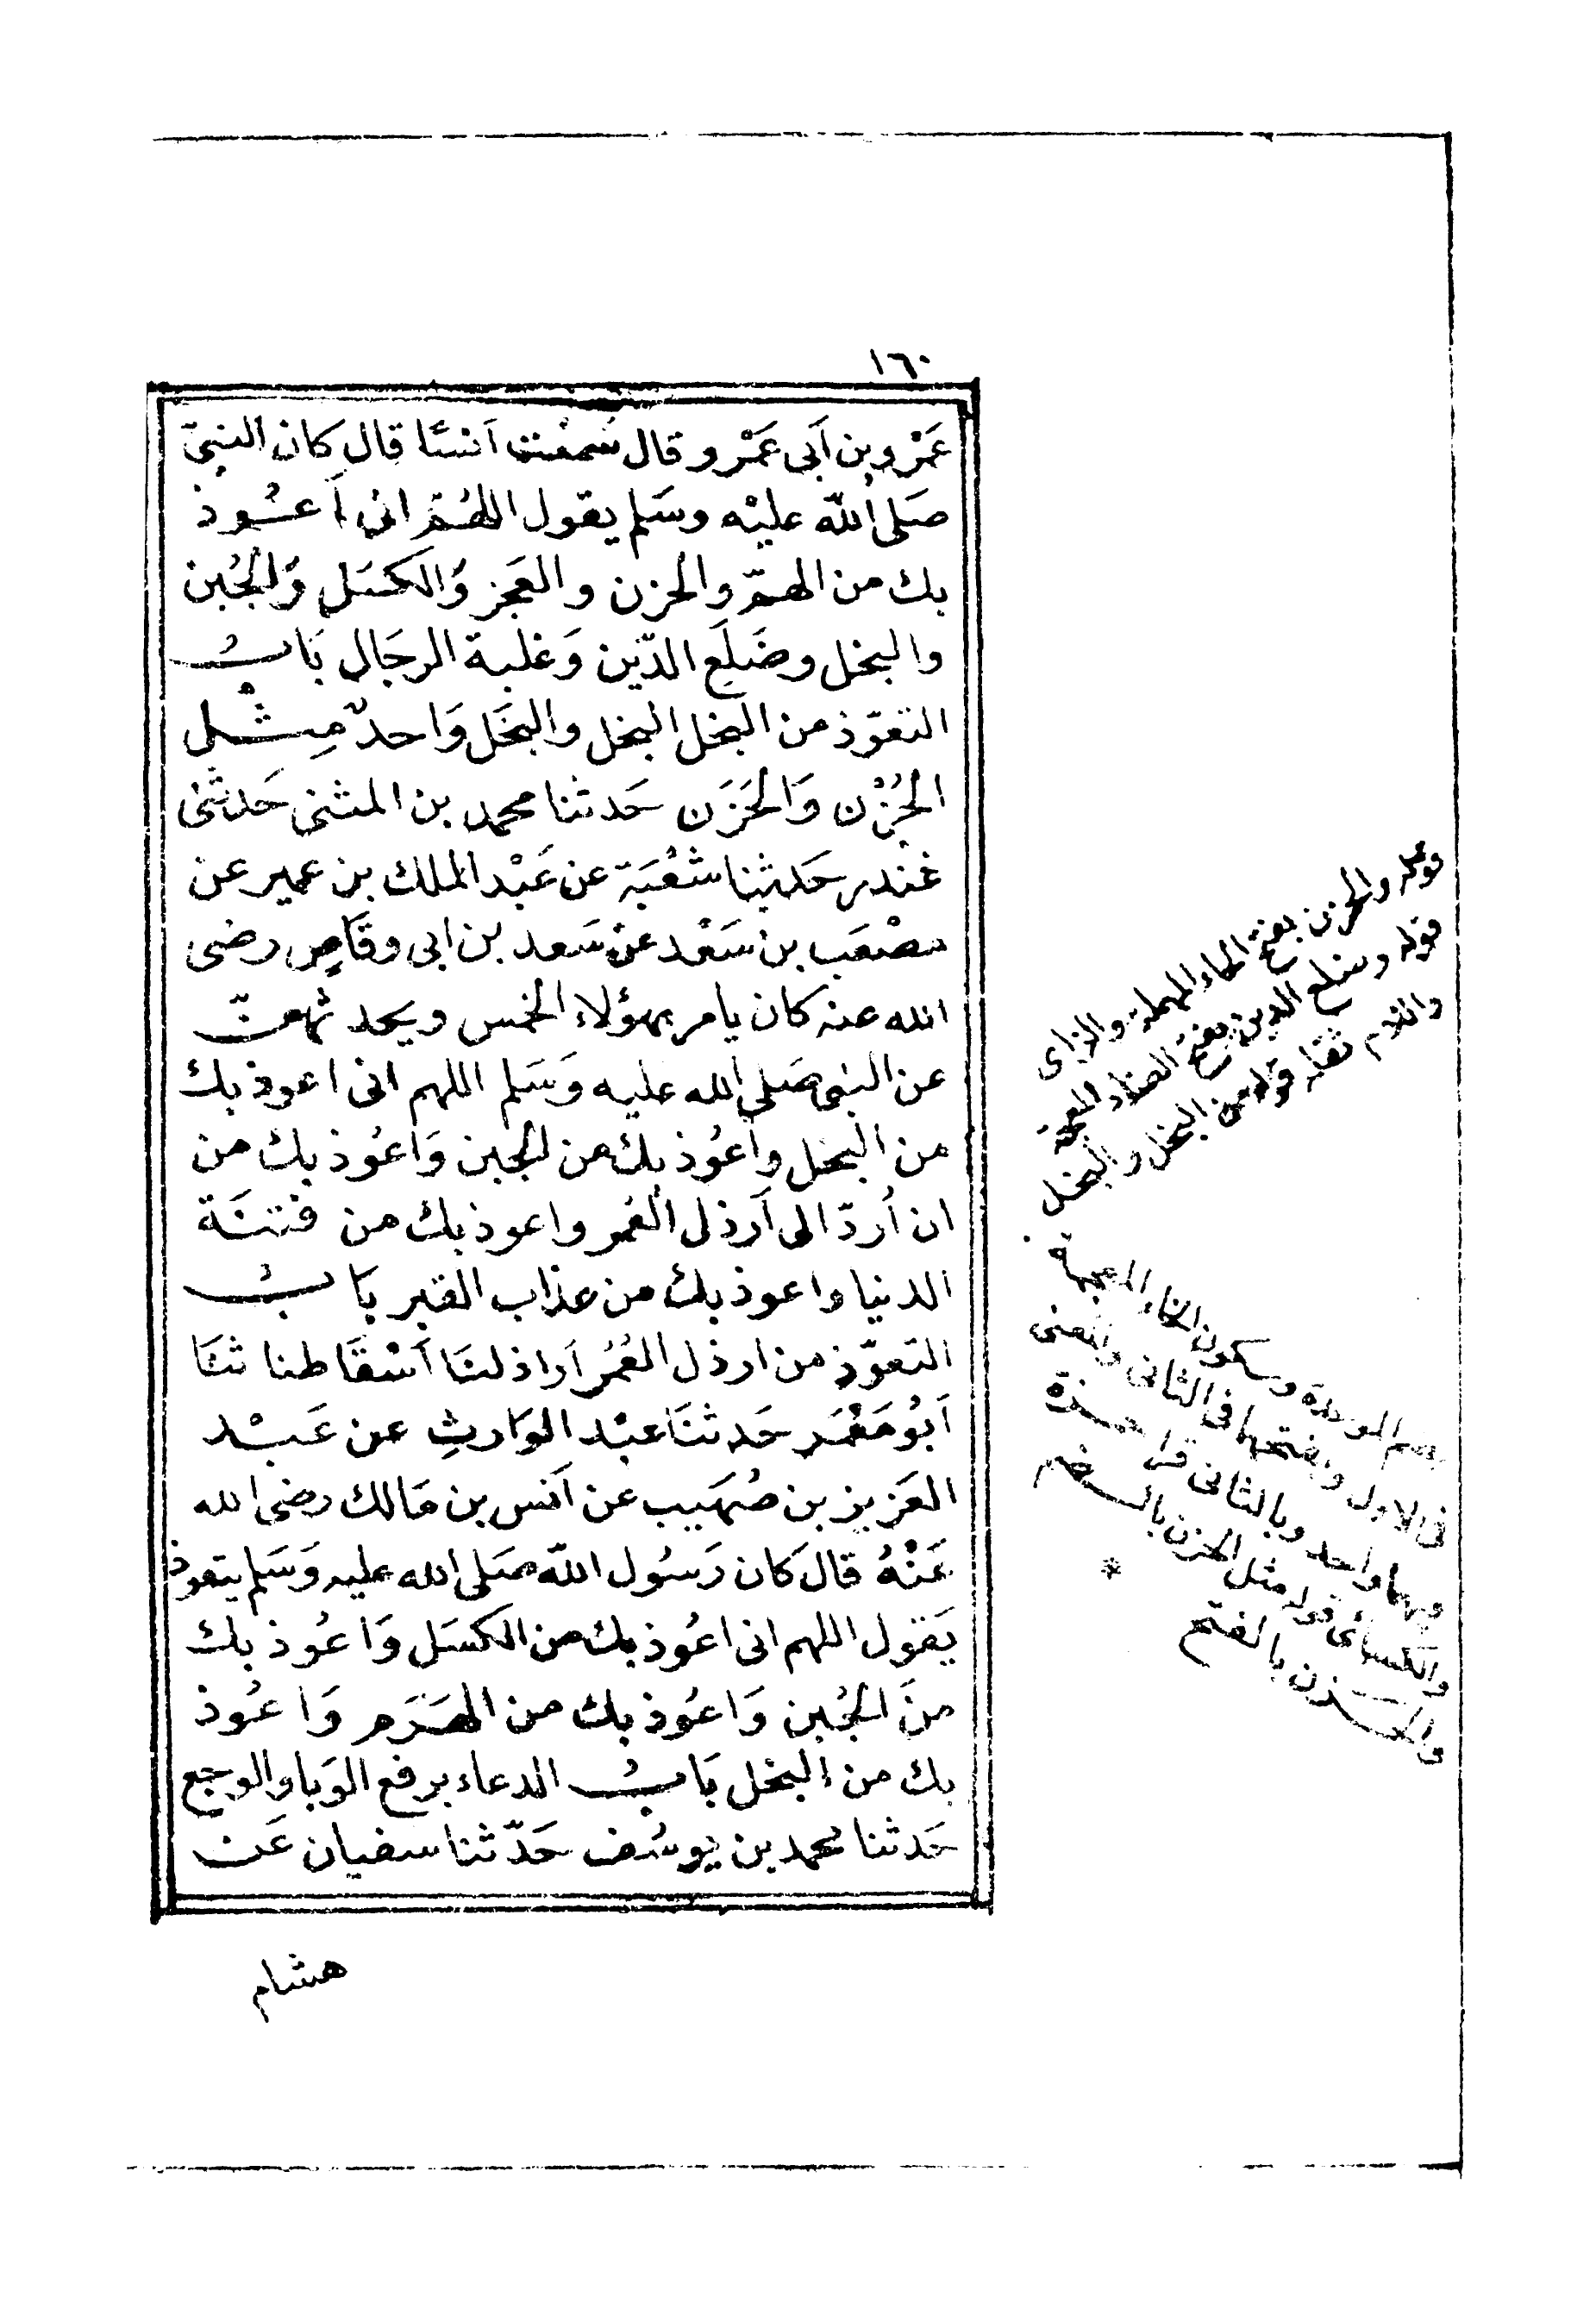 ١٦٠
عَمْرو بن اَبى عَمْرو قال سَمِعْت اَنسًا قال كان النبىّ
صَلى الله عليْه وسَلم يقول اللهُمّ انى اَعُوذ
بك من الهمّ والحزن والعَجز وَالكسَل وَالجُبن
والبخل وضَلَعِ الدّين وَغلبة الرجَال بَابُ
التعوّذ من البخل البخل والبَخَل وَاحدٌ مِثْل
الحُزْن وَالحَزَن حَدثنا محمد بن المثنى حَدثنى
غندر حَدثنا شعْبَة عن عَبْد الملك بن عمير عن
مصْعَب بن سَعْد عن سَعد بن ابى وقَاصٍ رضى
الله عنه كان يامر بهؤلاء الخمس ويحدثهنّ
عن النبى صَلى الله عليه وَسَلم اللهم انى اعوذ بك
من البخل واَعُوذ بك من الجبن وَاعُوذ بك من
ان اُردّ الى اَرذل العُمر واعوذ بك من فتنَة
الدنيا واعوذ بك من عذاب القبر بَابُ
التعوّذ من ارذل العُمُر اَراذلنَا اَسْقَاطنا ثنَا
اَبُو مَعْمَر حَدثنَا عبْد الوَارثِ عن عَبْد
العَزيز بن صُهَيب عن اَنس بن مَالك رضى الله
عَنْهُ قالَ كان رَسُول اللّه صَلى الله عليه وَسَلم يتعوذ
يَقول اللهم انى اعُوذ بك من الكسَل وَاعُوذ بك
منَ الجُبن وَاعُوذ بك من الهَرَم وَاعُوذ
بك من البخل بَابُ الدعاء برفع الوَبا والوجع
حَدثنا محمد بن يوسُف حَدّثنا سفيان عَن
هشام
قوله والحزن بفتح الحاء المهملة والزاى
قوله وضلع الدين بفتح الضاد المعجمة
واللام ثقله قوله من البخل والبخل
بضم الموحدة وسكون الخاء المعجمة
فى الاول وبفتحهما فى الثانى والمعنى
فيهما واحد وبالثانى قرا حمزة
والكسائى قوله مثل الحزن بالضم
والحزن بالفتح *